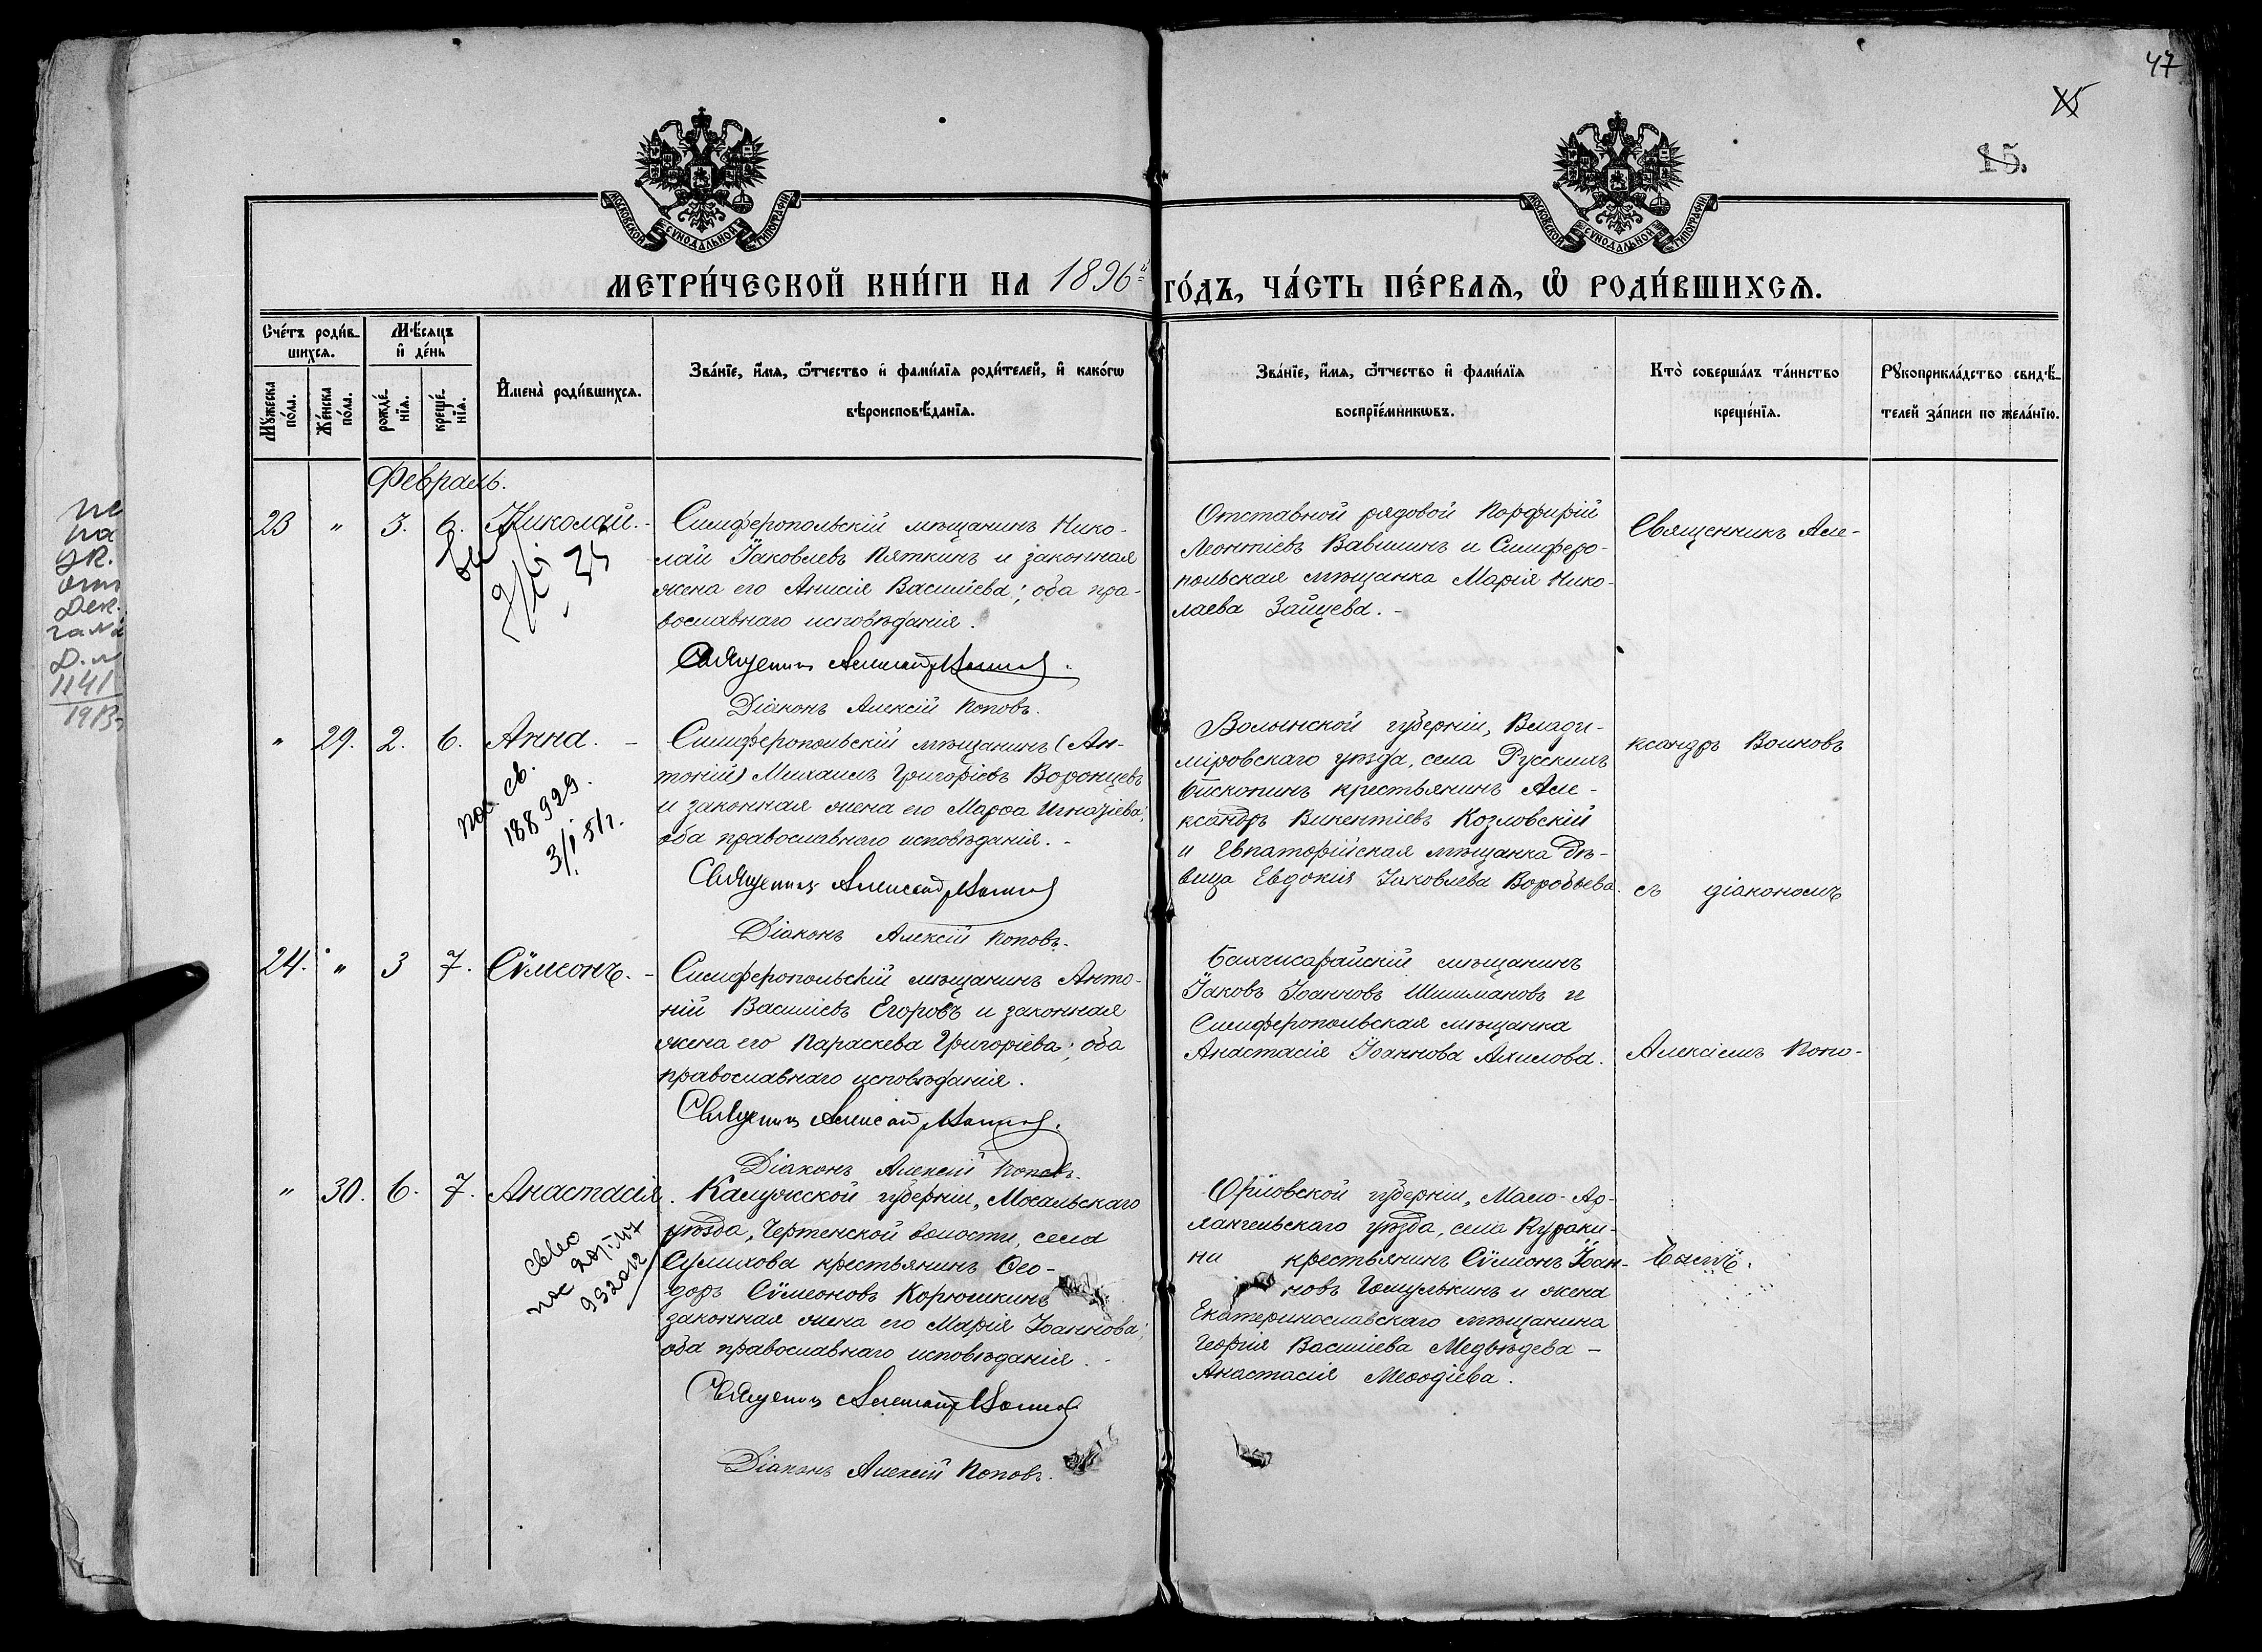 47
15.
МОСКОВСКОЙ СѴНОДАЛЬНОЙ ТИПОГРАФІИ
МОСКОВСКОЙ СѴНОДАЛЬНОЙ ТИПОГРАФІИ
МЕТРИ́ЧЕСКОЙ КНИ́ГИ НА 1896й ГО́ДЪ, ЧА́СТЬ ПЕ́РВАѦ, Ѡ РОДИ́ВШИХСѦ.
Сче́тъ роди́в-
шихсѧ.
Мѣ́сѧцъ
и҆ де́нь
Мꙋ́жеска по́ла.
Же́нска по́ла.
рожде́-
нїѧ.
креще́-
нїѧ.
И҆мена̀ роди́вшихсѧ.
Зва́нїе, и҆́мѧ, ѻ҆́тчество и҆ фами́лїѧ роди́телей, и҆ како́гѡ
вѣроисповѣ́данїѧ.
Зва́нїе, и҆́мѧ, ѻ҆́тчество и҆ фами́лїѧ
воспрїе́мникѡвъ.
Кто̀ соверша́лъ та́инство
креще́нїѧ.
Рꙋкоприкла́дство свидѣ́-
телей за́писи по жела́нїю.
Февраль.
23 " 3. 6. Николай. -
Симферопольскій мѣщанинъ Нико-
лай Іаковлевъ Пяткинъ и законная
жена его Анисія Василіева; оба пра-
вославнаго исповѣданія.
Священникъ Александръ Воиновъ.
Діаконъ Алексій Поповъ.
Отставной рядовой Порфирій
Леонтіевъ Вавилинъ и Симферо-
польская мѣщанка Марія Нико-
лаева Зайцева. -
Священникъ Але-
" 29. 2. 6. Анна. -
пас. св.
188929.
3/I 51г.
Симферопольскій мѣщанинъ (Ан-
тоній) Михаилъ Григоріевъ Воронцевъ
и законная жена его Марѳа Игнатіева;
оба православнаго исповѣданія. -
Священникъ Александръ Воиновъ
Діаконъ Алексій Поповъ.
Волынской губерніи, Влади-
міровскаго уѣзда, села Русскихъ
Бископичъ крестьянинъ Але-
ксандръ Викентіевъ Козловскій
и Евпаторійская мѣщанка дѣ-
вица Евдокія Іаковлева Воробьева.
ксандръ Воиновъ
съ діакономъ
24. " 3 7. Сѵмеонъ. -
Симферопольскій мѣщанинъ Анто-
ній Василіевъ Егоровъ и законная
жена его Параскева Григоріева; оба
православнаго исповѣданія.
Священникъ Александръ Воиновъ.
Діаконъ Алексій Поповъ.
Бахчисарайскій мѣщанинъ
Іаковъ Іоанновъ Шишмановъ и
Симферопольская мѣщанка
Анастасія Іоаннова Ахилова.
Алексіемъ Попо-
" 30. 6. 7. Анастасія.
Калужской губерніи, Мосальскаго
уѣзда, Чертенской волости, села
Сулихова крестьянинъ Ѳео-
доръ Сѵмеоновъ Корюшкинъ
законная жена его Марія Іоаннова;
оба православнаго исповѣданія. -
Священникъ Александръ Воиновъ
Діаконъ Алексій Поповъ.
Орловской губерніи, Мало-Ар-
хангельскаго уѣзда, села Кураки-
на крестьянинъ Сѵмеонъ Іоан-
новъ Гомулькинъ и жена
Екатеринославскаго мѣщанина
Георгія Василіева Медвѣдева -
Анастасія Меѳодіева.
вымъ.
1141